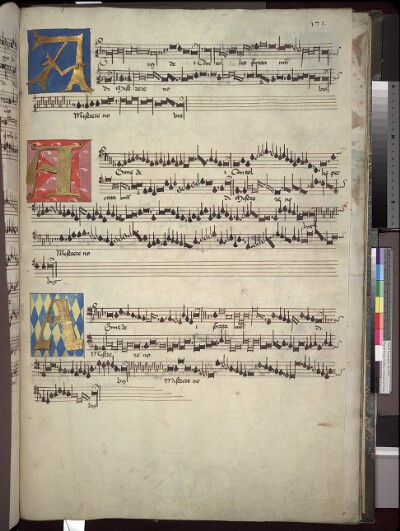 171.
A gnus de i Qui tol lis peccata mū
di Miserere no bis
Miserere no bis
A Gnus de i Qui tol lis pec
cata mū di Misere re no
bis
Miserere no
bis
A Gnus de i peccata mū di
Misere re no
bis Miserere no
bis